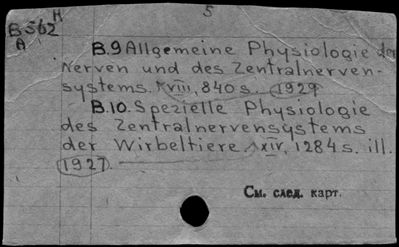 5
B-562 H
A
B.9 Allgemeine Physiologie der
Nerven und des Zentralnerven-
systems. XVIII, 840 s. 1929
B.10. Spezielle Physiologie
des Zentralnervensystems
der Wirbeltiere. XIV, 1284 s. ill.
1927.
См. след. карт.